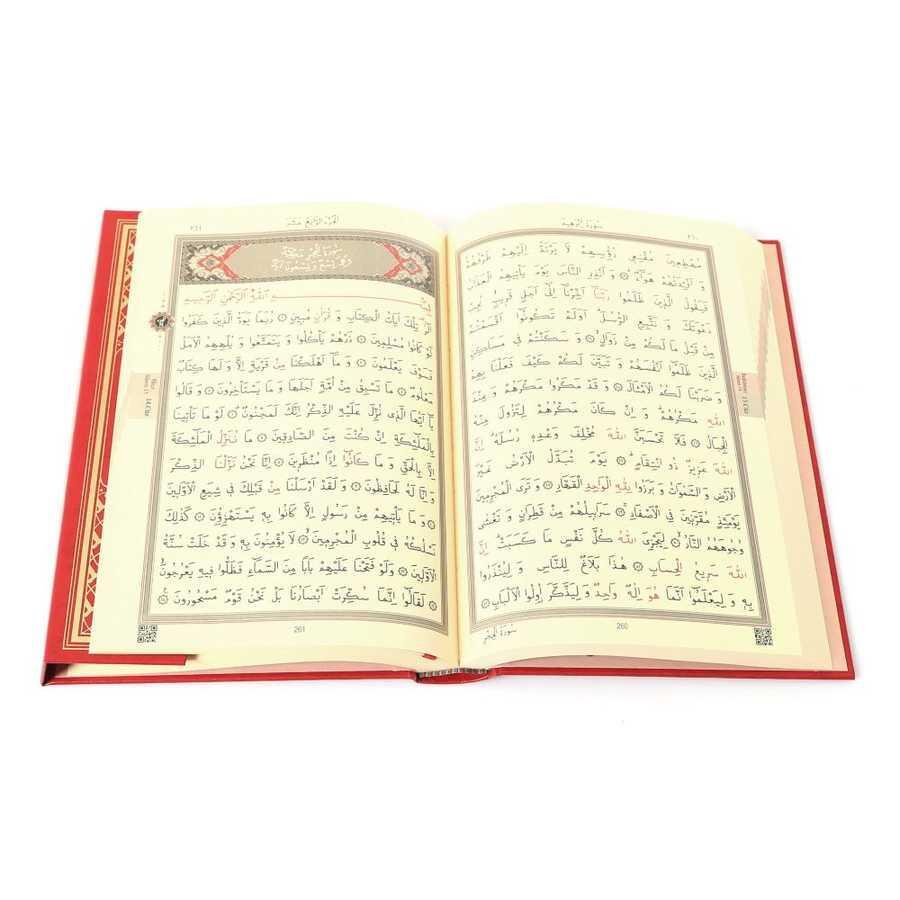 سُورَةُ اِبْرٰهِيمَ
٢٦٠
مُهْطِعِينَ مُقْنِعِي رُؤُسِهِمْ لَا يَرْتَدُّ اِلَيْهِمْ طَرْفُهُمْ
وَاَفْـِٔدَتُهُمْ هَوَاءٌ ۞ وَاَنْذِرِ النَّاسَ يَوْمَ يَأْتِيهِمُ الْعَذَابُ
فَيَقُولُ الَّذِينَ ظَلَمُوا رَبَّنَا اَخِّرْنَا اِلٰى اَجَلٍ قَرِيبٍ نُجِبْ
دَعْوَتَكَ وَنَتَّبِعِ الرُّسُلَ اَوَلَمْ تَكُونُوا اَقْسَمْتُمْ
مِنْ قَبْلُ مَا لَكُمْ مِنْ زَوَالٍ ۞ وَسَكَنْتُمْ فِي مَسَاكِنِ
الَّذِينَ ظَلَمُوا اَنْفُسَهُمْ وَتَبَيَّنَ لَكُمْ كَيْفَ فَعَلْنَا بِهِمْ
وَضَرَبْنَا لَكُمُ الْاَمْثَالَ ۞ وَقَدْ مَكَرُوا مَكْرَهُمْ وَعِنْدَ
اللّٰهِ مَكْرُهُمْ وَاِنْ كَانَ مَكْرُهُمْ لِتَزُولَ مِنْهُ
الْجِبَالُ ۞ فَلَا تَحْسَبَنَّ اللّٰهَ مُخْلِفَ وَعْدِهِ رُسُلَهُ اِنَّ
اللّٰهَ عَزِيزٌ ذُو انْتِقَامٍ ۞ يَوْمَ تُبَدَّلُ الْاَرْضُ غَيْرَ
الْاَرْضِ وَالسَّمٰوَاتُ وَبَرَزُوا لِلّٰهِ الْوَاحِدِ الْقَهَّارِ ۞ وَتَرَى الْمُجْرِمِينَ
يَوْمَئِذٍ مُقَرَّنِينَ فِي الْاَصْفَادِ ۞ سَرَابِيلُهُمْ مِنْ قَطِرَانٍ وَتَغْشٰى
وُجُوهَهُمُ النَّارُ ۞ لِيَجْزِيَ اللّٰهُ كُلَّ نَفْسٍ مَا كَسَبَتْ اِنَّ
اللّٰهَ سَرِيعُ الْحِسَابِ ۞ هٰذَا بَلَاغٌ لِلنَّاسِ وَلِيُنْذَرُوا
بِهِ وَلِيَعْلَمُوا اَنَّمَا هُوَ اِلٰهٌ وَاحِدٌ وَلِيَذَّكَّرَ اُولُوا الْاَلْبَابِ ۞
260
سُورَةُ الْحِجْرِ
اَلْجُزْءُ الرَّابِعَ عَشَرَ
٢٦١
بِسْمِ اللّٰهِ الرَّحْمٰنِ الرَّحِيمِ
الٓرٰ تِلْكَ اٰيَاتُ الْكِتَابِ وَقُرْاٰنٍ مُبِينٍ ۞ رُبَمَا يَوَدُّ الَّذِينَ كَفَرُوا
لَوْ كَانُوا مُسْلِمِينَ ۞ ذَرْهُمْ يَأْكُلُوا وَيَتَمَتَّعُوا وَيُلْهِهِمُ الْاَمَلُ
فَسَوْفَ يَعْلَمُونَ ۞ وَمَا اَهْلَكْنَا مِنْ قَرْيَةٍ اِلَّا وَلَهَا كِتَابٌ
مَعْلُومٌ ۞ مَا تَسْبِقُ مِنْ اُمَّةٍ اَجَلَهَا وَمَا يَسْتَأْخِرُونَ ۞ وَقَالُوا
يَا اَيُّهَا الَّذِي نُزِّلَ عَلَيْهِ الذِّكْرُ اِنَّكَ لَمَجْنُونٌ ۞ لَوْ مَا تَأْتِينَا
بِالْمَلٰئِكَةِ اِنْ كُنْتَ مِنَ الصَّادِقِينَ ۞ مَا نُنَزِّلُ الْمَلٰئِكَةَ
اِلَّا بِالْحَقِّ وَمَا كَانُوا اِذًا مُنْظَرِينَ ۞ اِنَّا نَحْنُ نَزَّلْنَا الذِّكْرَ
وَاِنَّا لَهُ لَحَافِظُونَ ۞ وَلَقَدْ اَرْسَلْنَا مِنْ قَبْلِكَ فِي شِيَعِ الْاَوَّلِينَ
۞ وَمَا يَأْتِيهِمْ مِنْ رَسُولٍ اِلَّا كَانُوا بِهِ يَسْتَهْزِؤُنَ ۞ كَذٰلِكَ
نَسْلُكُهُ فِي قُلُوبِ الْمُجْرِمِينَ ۞ لَا يُؤْمِنُونَ بِهِ وَقَدْ خَلَتْ سُنَّةُ
الْاَوَّلِينَ ۞ وَلَوْ فَتَحْنَا عَلَيْهِمْ بَابًا مِنَ السَّمَاءِ فَظَلُّوا فِيهِ يَعْرُجُونَ
۞ لَقَالُوا اِنَّمَا سُكِّرَتْ اَبْصَارُنَا بَلْ نَحْنُ قَوْمٌ مَسْحُورُونَ ۞
261